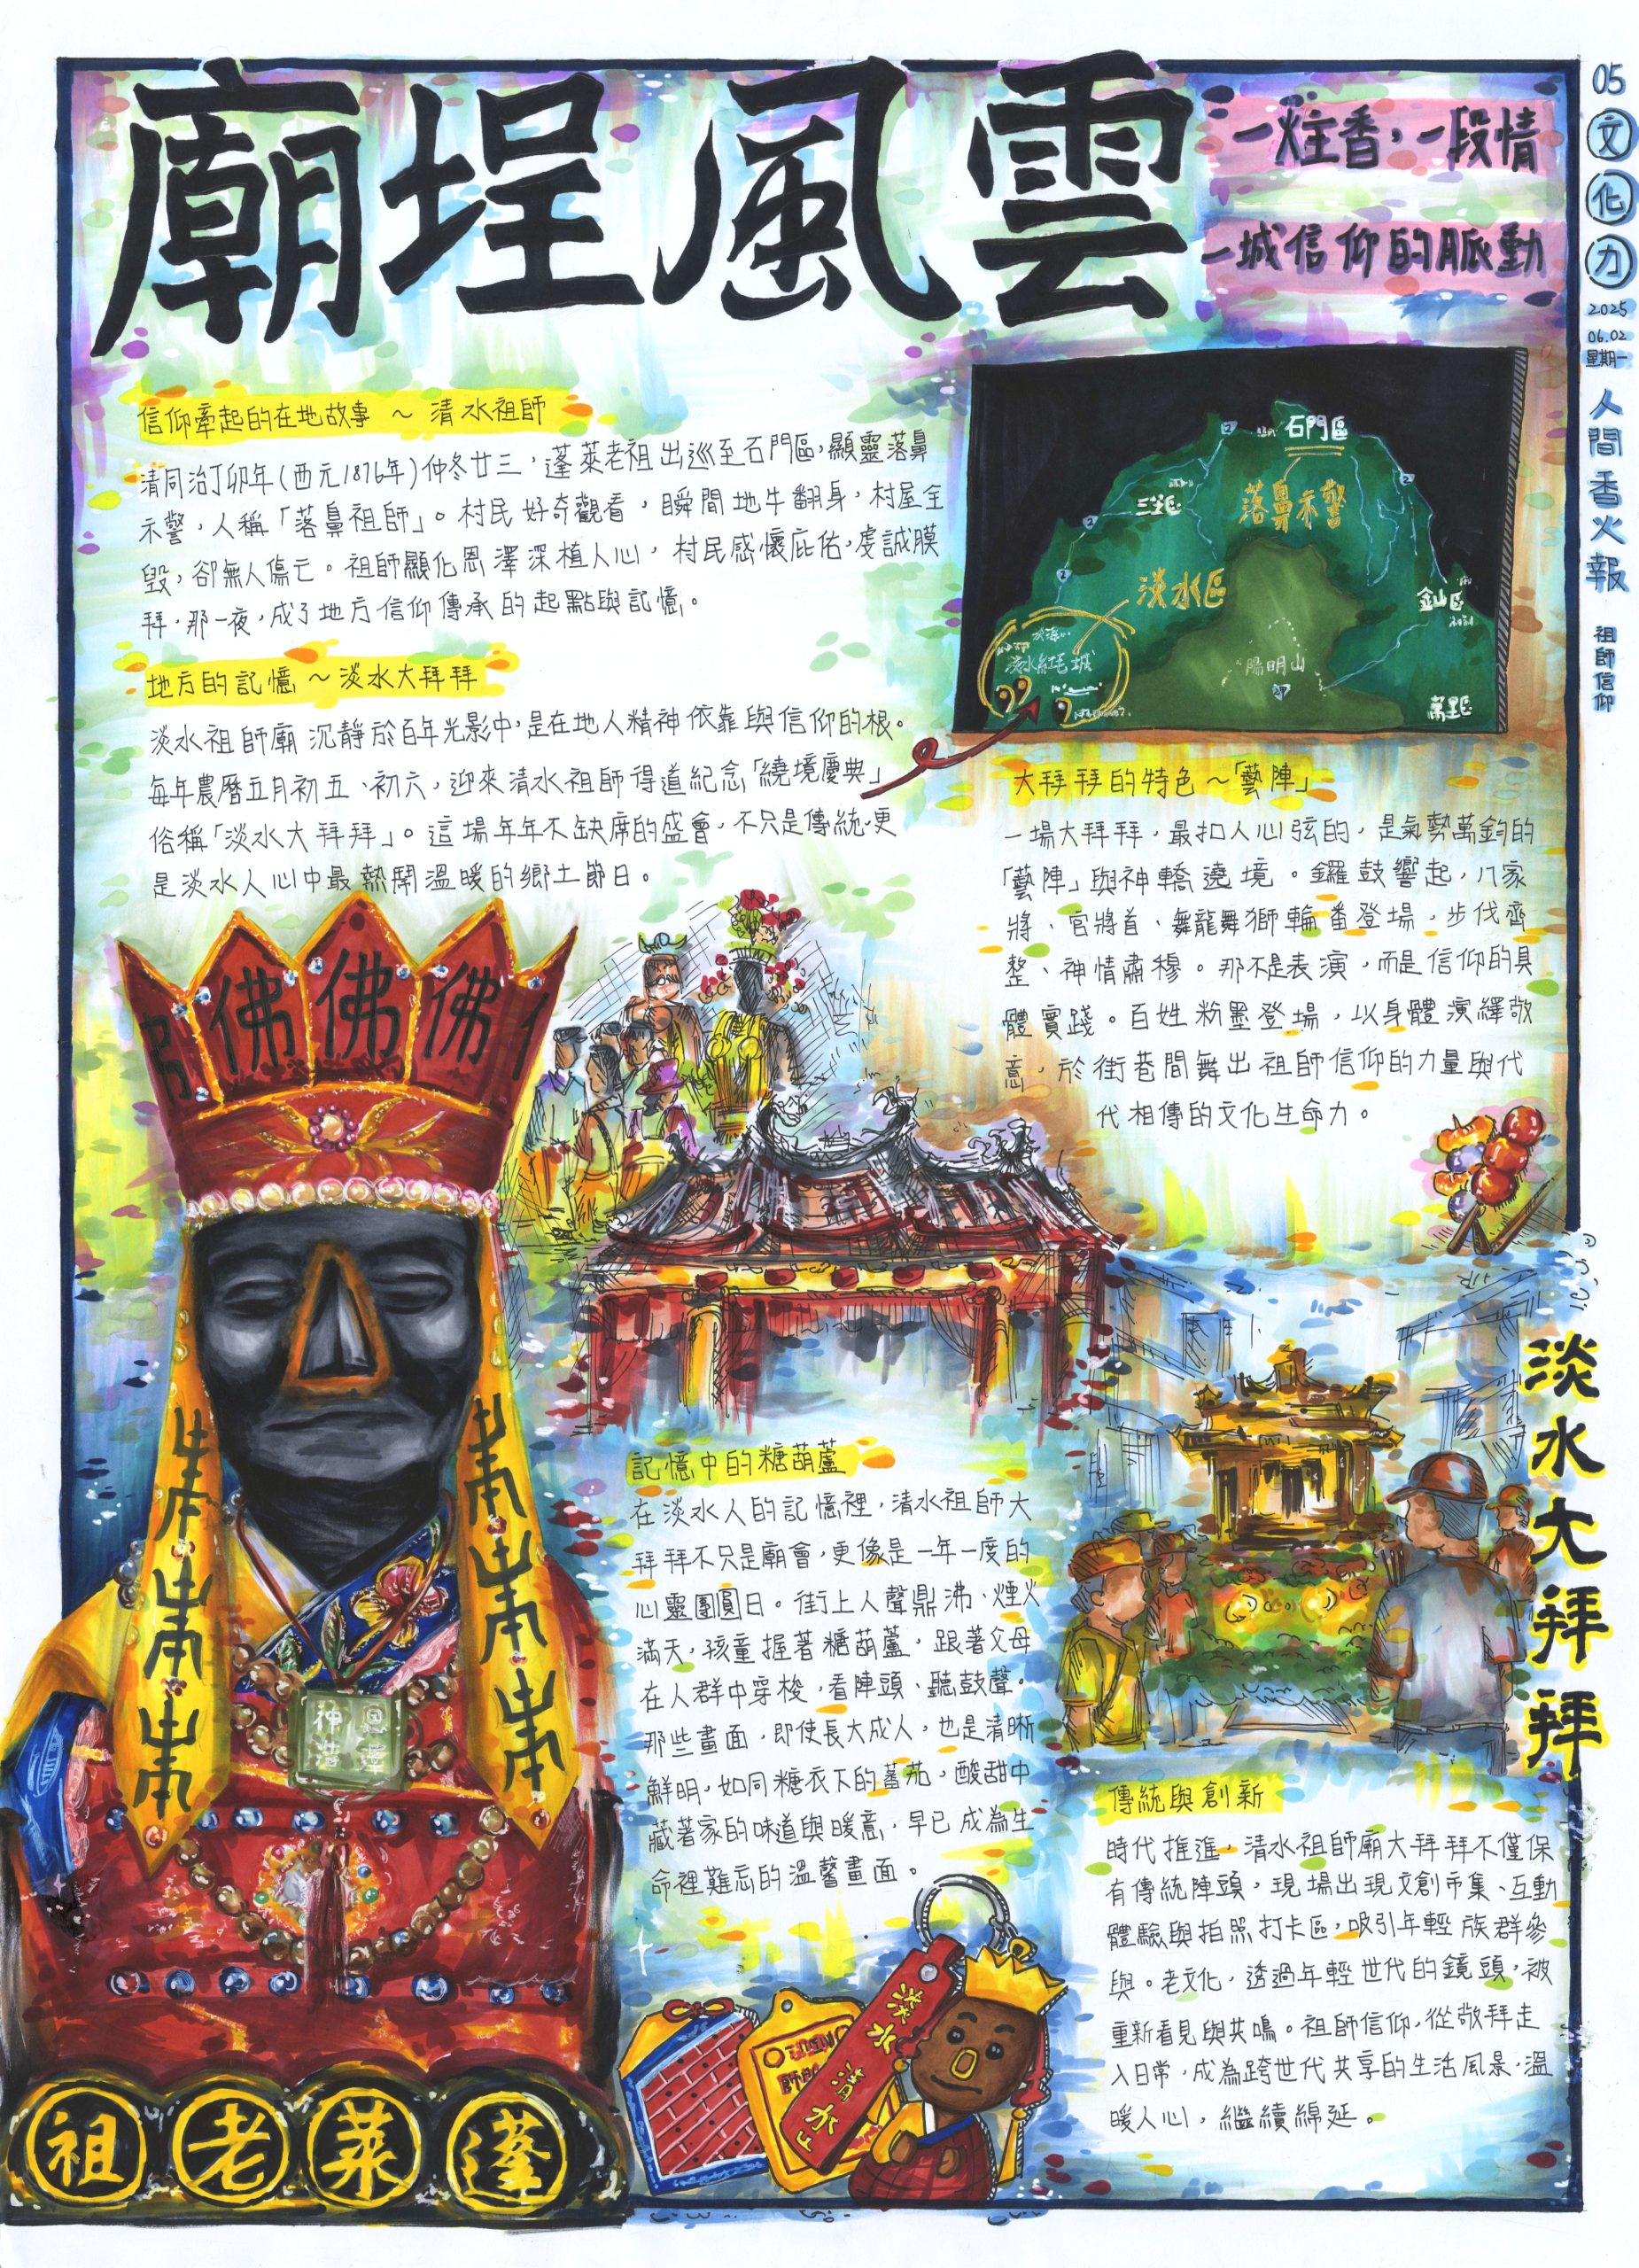 廟埕風雲
一炷香，一段情
一城信仰的脈動
05
文化力
2025
06.02
星期一
人間香火報
祖師信仰
信仰牽起的在地故事 ～ 清水祖師
清同治丁卯年(西元1876年)仲冬廿三，蓬萊老祖出巡至石門區，顯靈落鼻
示警，人稱「落鼻祖師」。村民好奇觀看，瞬間地牛翻身，村屋全
毀，卻無人傷亡。祖師顯化恩澤深植人心，村民感懷庇佑，虔誠膜
拜，那一夜，成了地方信仰傳承的起點與記憶。
地方的記憶～淡水大拜拜
淡水祖師廟沉靜於百年光影中，是在地人精神依靠與信仰的根。
每年農曆五月初五、初六，迎來清水祖師得道紀念「繞境慶典」
俗稱「淡水大拜拜」。這場年年不缺席的盛會，不只是傳統，更
是淡水人心中最熱鬧溫暖的鄉土節日。
石門區
三芝區
落鼻示警
淡水區
金山區
淡水紅毛城
陽明山
萬里區
大拜拜的特色～「藝陣」
一場大拜拜，最扣人心弦的，是氣勢萬鈞的
「藝陣」與神轎遶境。鑼鼓響起，八家
將、官將首、舞龍舞獅輪番登場，步伐齊
整、神情肅穆。那不是表演，而是信仰的具
體實踐。百姓粉墨登場，以身體演繹敬
意，於街巷間舞出祖師信仰的力量與代
代相傳的文化生命力。
佛佛佛
淡水大拜拜
記憶中的糖葫蘆
在淡水人的記憶裡，清水祖師大
拜拜不只是廟會，更像是一年一度的
心靈團圓日。街上人聲鼎沸、煙火
滿天，孩童握著糖葫蘆，跟著父母
在人群中穿梭，看陣頭、聽鼓聲。
那些畫面，即使長大成人，也是清晰
鮮明，如同糖衣下的蕃茄，酸甜中
藏著家的味道與暖意，早已成為生
命裡難忘的溫馨畫面。
傳統與創新
時代推進，清水祖師廟大拜拜不僅保
有傳統陣頭，現場出現文創市集、互動
體驗與拍照打卡區，吸引年輕族群參
與。老文化，透過年輕世代的鏡頭，被
重新看見與共鳴。祖師信仰，從敬拜走
入日常，成為跨世代共享的生活風景，溫
暖人心，繼續綿延。
淡水清水
祖老萊蓬